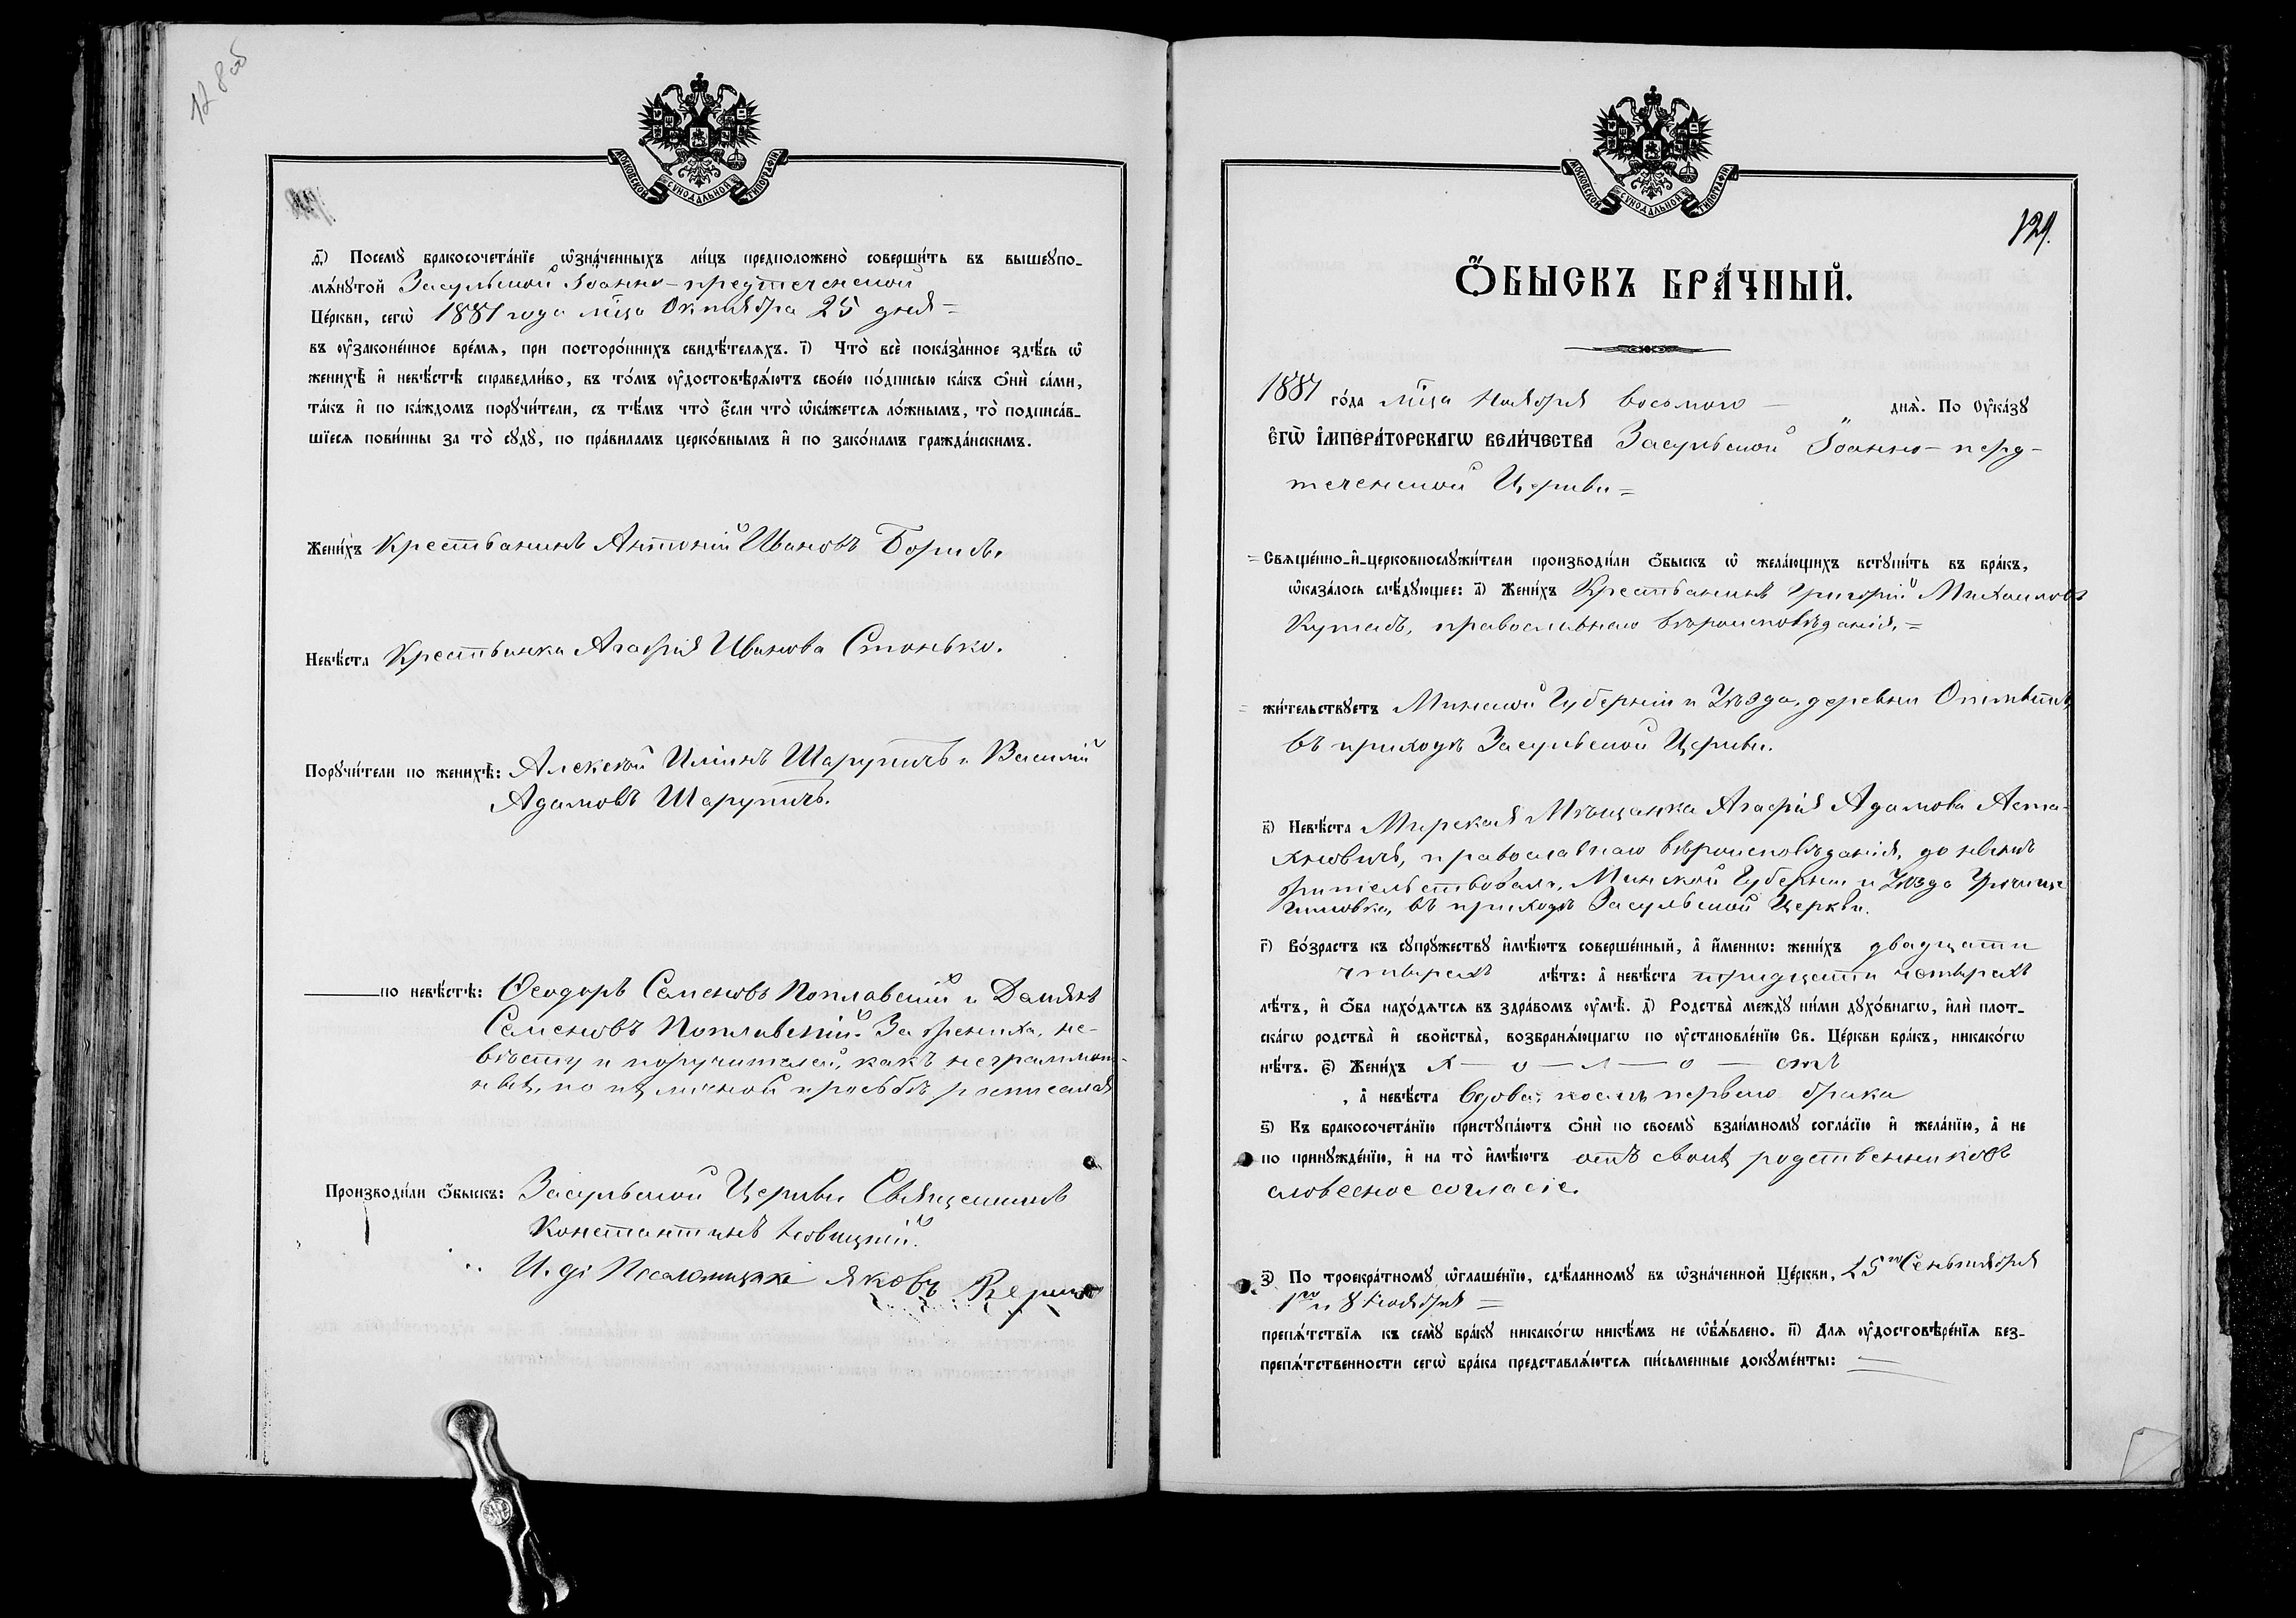 128 об
МОСКОВСКОЙ СУНОДАЛЬНОЙ ТИПОГРАФІИ
ѳ҃) Посемꙋ̀ бракосочета́нїе ѡ҆зна́ченныхъ ли́цъ предположено̀ соверши́ть въ вышеꙋпо-
мѧ́нꙋтой Засульской Іоанно-предтеченской
Це́ркви, сегѡ̀ 1881 года м̃ца Октября 25 дня =
въ оу҆законе́нное вре́мѧ, при посторо́ннихъ свидѣ́телѧхъ. і҃) Что̀ всѐ пока́занное здѣ́сь ѡ҆
женихѣ̀ и҆ невѣ́стѣ справедли́во, въ то́мъ оу҆достовѣрѧ́ютъ свое́ю по́дписью ка́къ ѻ҆нѝ са́ми,
та́къ и҆ по ка́ждомъ порꙋчи́тели, съ тѣ́мъ что̀ є҆́сли что̀ ѡ҆ка́жетсѧ ло́жнымъ, то̀ подписа́в-
шїесѧ пови́нны за то̀ сꙋдꙋ̀, по пра́виламъ церко́внымъ и҆ по зако́намъ гражда́нскимъ.
Жени́хъ Крестьянинъ Антоній Ивановъ
Невѣ́ста Крестьянка Агафія Иванова Стонько.
Порꙋчи́тели по женихѣ̀: Алексѣй Ильинъ Шарупичъ и Василій
Адамовъ Шарупичъ.
по невѣ́стѣ: Ѳеодоръ Семеновъ Поплавскій и Даміянъ
Семеновъ Поплавскій. За жениха, не-
вѣсту и поручителей, какъ неграммот-
ныхъ, по ихъ личной просьбѣ росписался
Производи́ли ѻ҆́быскъ: Засульской Церкви Священникъ
Константинъ Новицкій.
И. д. Псаломщика Яковъ
МОСКОВСКОЙ СУНОДАЛЬНОЙ ТИПОГРАФІИ
129.
Ѻ҆́БЫСКЪ БРА́ЧНЫЙ.
1881 го́да м̃ца Ноября восьмого — днѧ̀. По Оу҆ка́зꙋ
Є҆ГѠ̀ И҆МПЕРА́ТОРСКАГѠ ВЕЛИ́ЧЕСТВА Засульской Іоанно-перд-
теченской Церкви =
Свѧще́нно-и҆-церковнослꙋжи́тели производи́ли ѻ҆́быскъ ѡ҆ жела́ющихъ встꙋпи́ть въ бра́къ,
ѡ҆каза́лось слѣ́дꙋющее: а҃) Жени́хъ Крестьянинъ Григорій Михаиловъ
православнаго вѣроисповѣданія, =
жи́тельствꙋетъ Минской Губерніи и Уѣзда, деревни
въ приходѣ Засульской Церкви.
в҃) Невѣ́ста Мирская Мѣщанка Агафія Адамова Аста-
хновичъ, православнаго вѣроисповѣданія, до нынѣ
жительствовала, Минской Губерніи и Уѣзда
въ приходѣ Засульской Церкви.
г҃) Во́зрастъ къ сꙋпрꙋ́жествꙋ и҆мѣ́ютъ соверше́нный, а҆ и҆́меннѡ: жени́хъ двадцати
четырехъ лѣ́тъ: а҆ невѣ́ста тридцати четырехъ
лѣ́тъ, и҆ ѻ҆́ба нахо́дѧтсѧ въ здра́вомъ оу҆мѣ̀. д҃) Родства̀ междꙋ̀ ни́ми дꙋхо́внагѡ, и҆лѝ плот-
ска́гѡ родства̀ и҆ свойства̀, возбранѧ́ющагѡ по оу҆становле́нїю Св. Це́ркви бра́къ, никако́гѡ
нѣ́тъ. є҃) Жени́хъ х — о — л — о — стъ
, а҆ невѣ́ста вдова, послѣ первого брака
ѕ҃) Къ бракосочета́нїю пристꙋпа́ютъ ѻ҆нѝ по своемꙋ̀ взаи́мномꙋ согла́сїю и҆ жела́нїю, а҆ не
по принꙋжде́нїю, и҆ на то̀ и҆мѣ́ютъ отъ своихъ родственниковъ
словесное согласіе.
з҃) По троекра́тномꙋ ѡ҆глаше́нїю, сдѣ́ланномꙋ въ ѡ҆зна́ченной Це́ркви, 25го Сеньтября
1го и 8 Ноября =
препѧ́тствїѧ къ семꙋ̀ бра́кꙋ никако́гѡ никѣ́мъ не ѡ҆бъѧ́влено. и҃) Длѧ оу҆достовѣре́нїѧ без-
препѧ́тственности сегѡ̀ бра́ка представлѧ́ютсѧ пи́сьменные докꙋме́нты: —